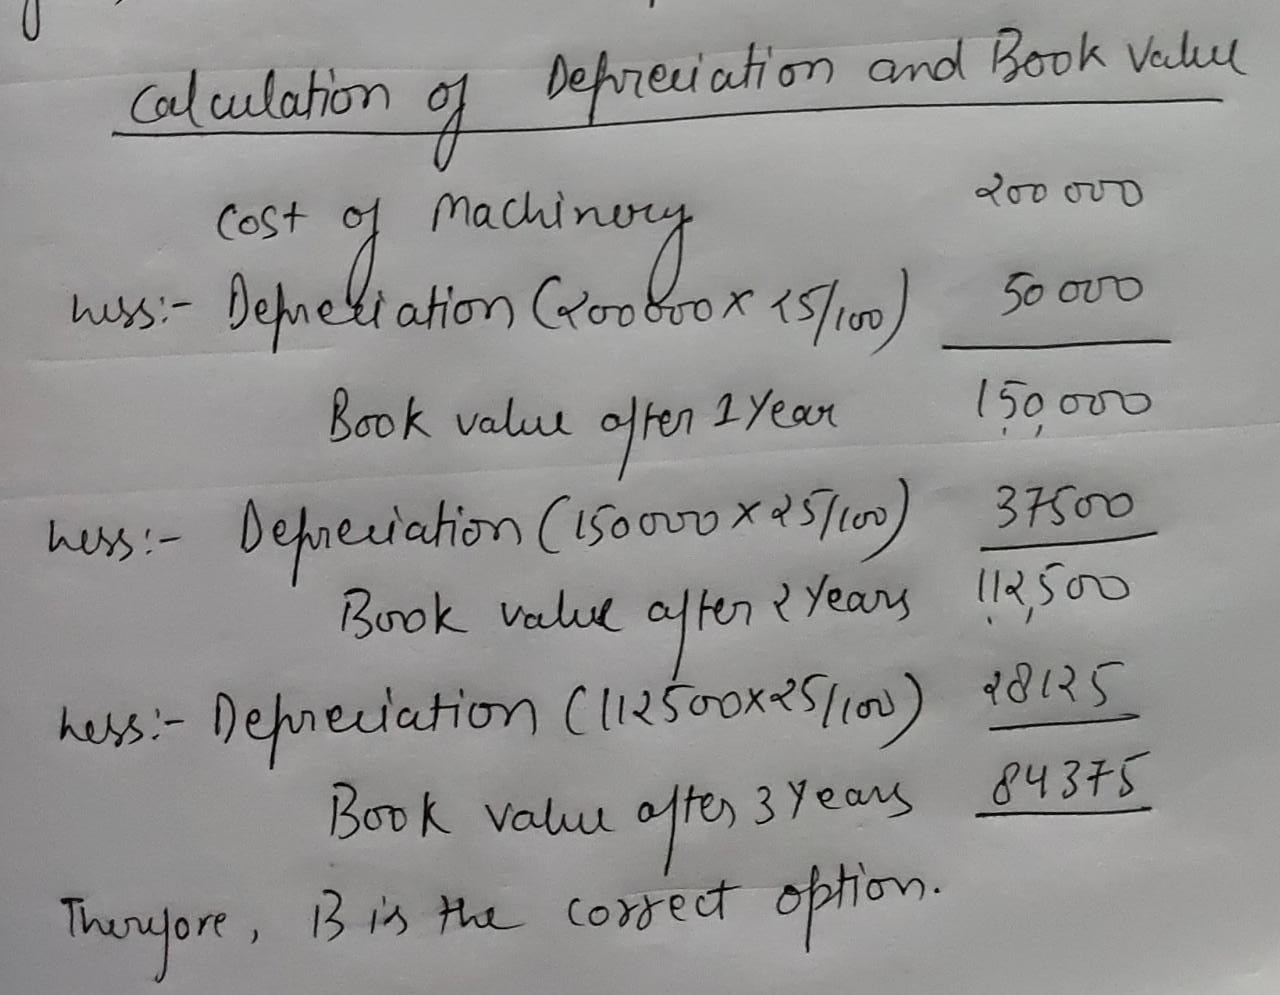 Calculation of Depreciation and Book Value
Cost of Machinery 200 000
Less:- Depreciation (200000 x 25/100) 50 000
Book value after 1 Year 150,000
Less:- Depreciation (150000 x 25/100) 37500
Book value after 2 Years 112,500
Less:- Depreciation (112500x25/100) 28125
Book value after 3 Years 84375
Therefore, B is the correct option.